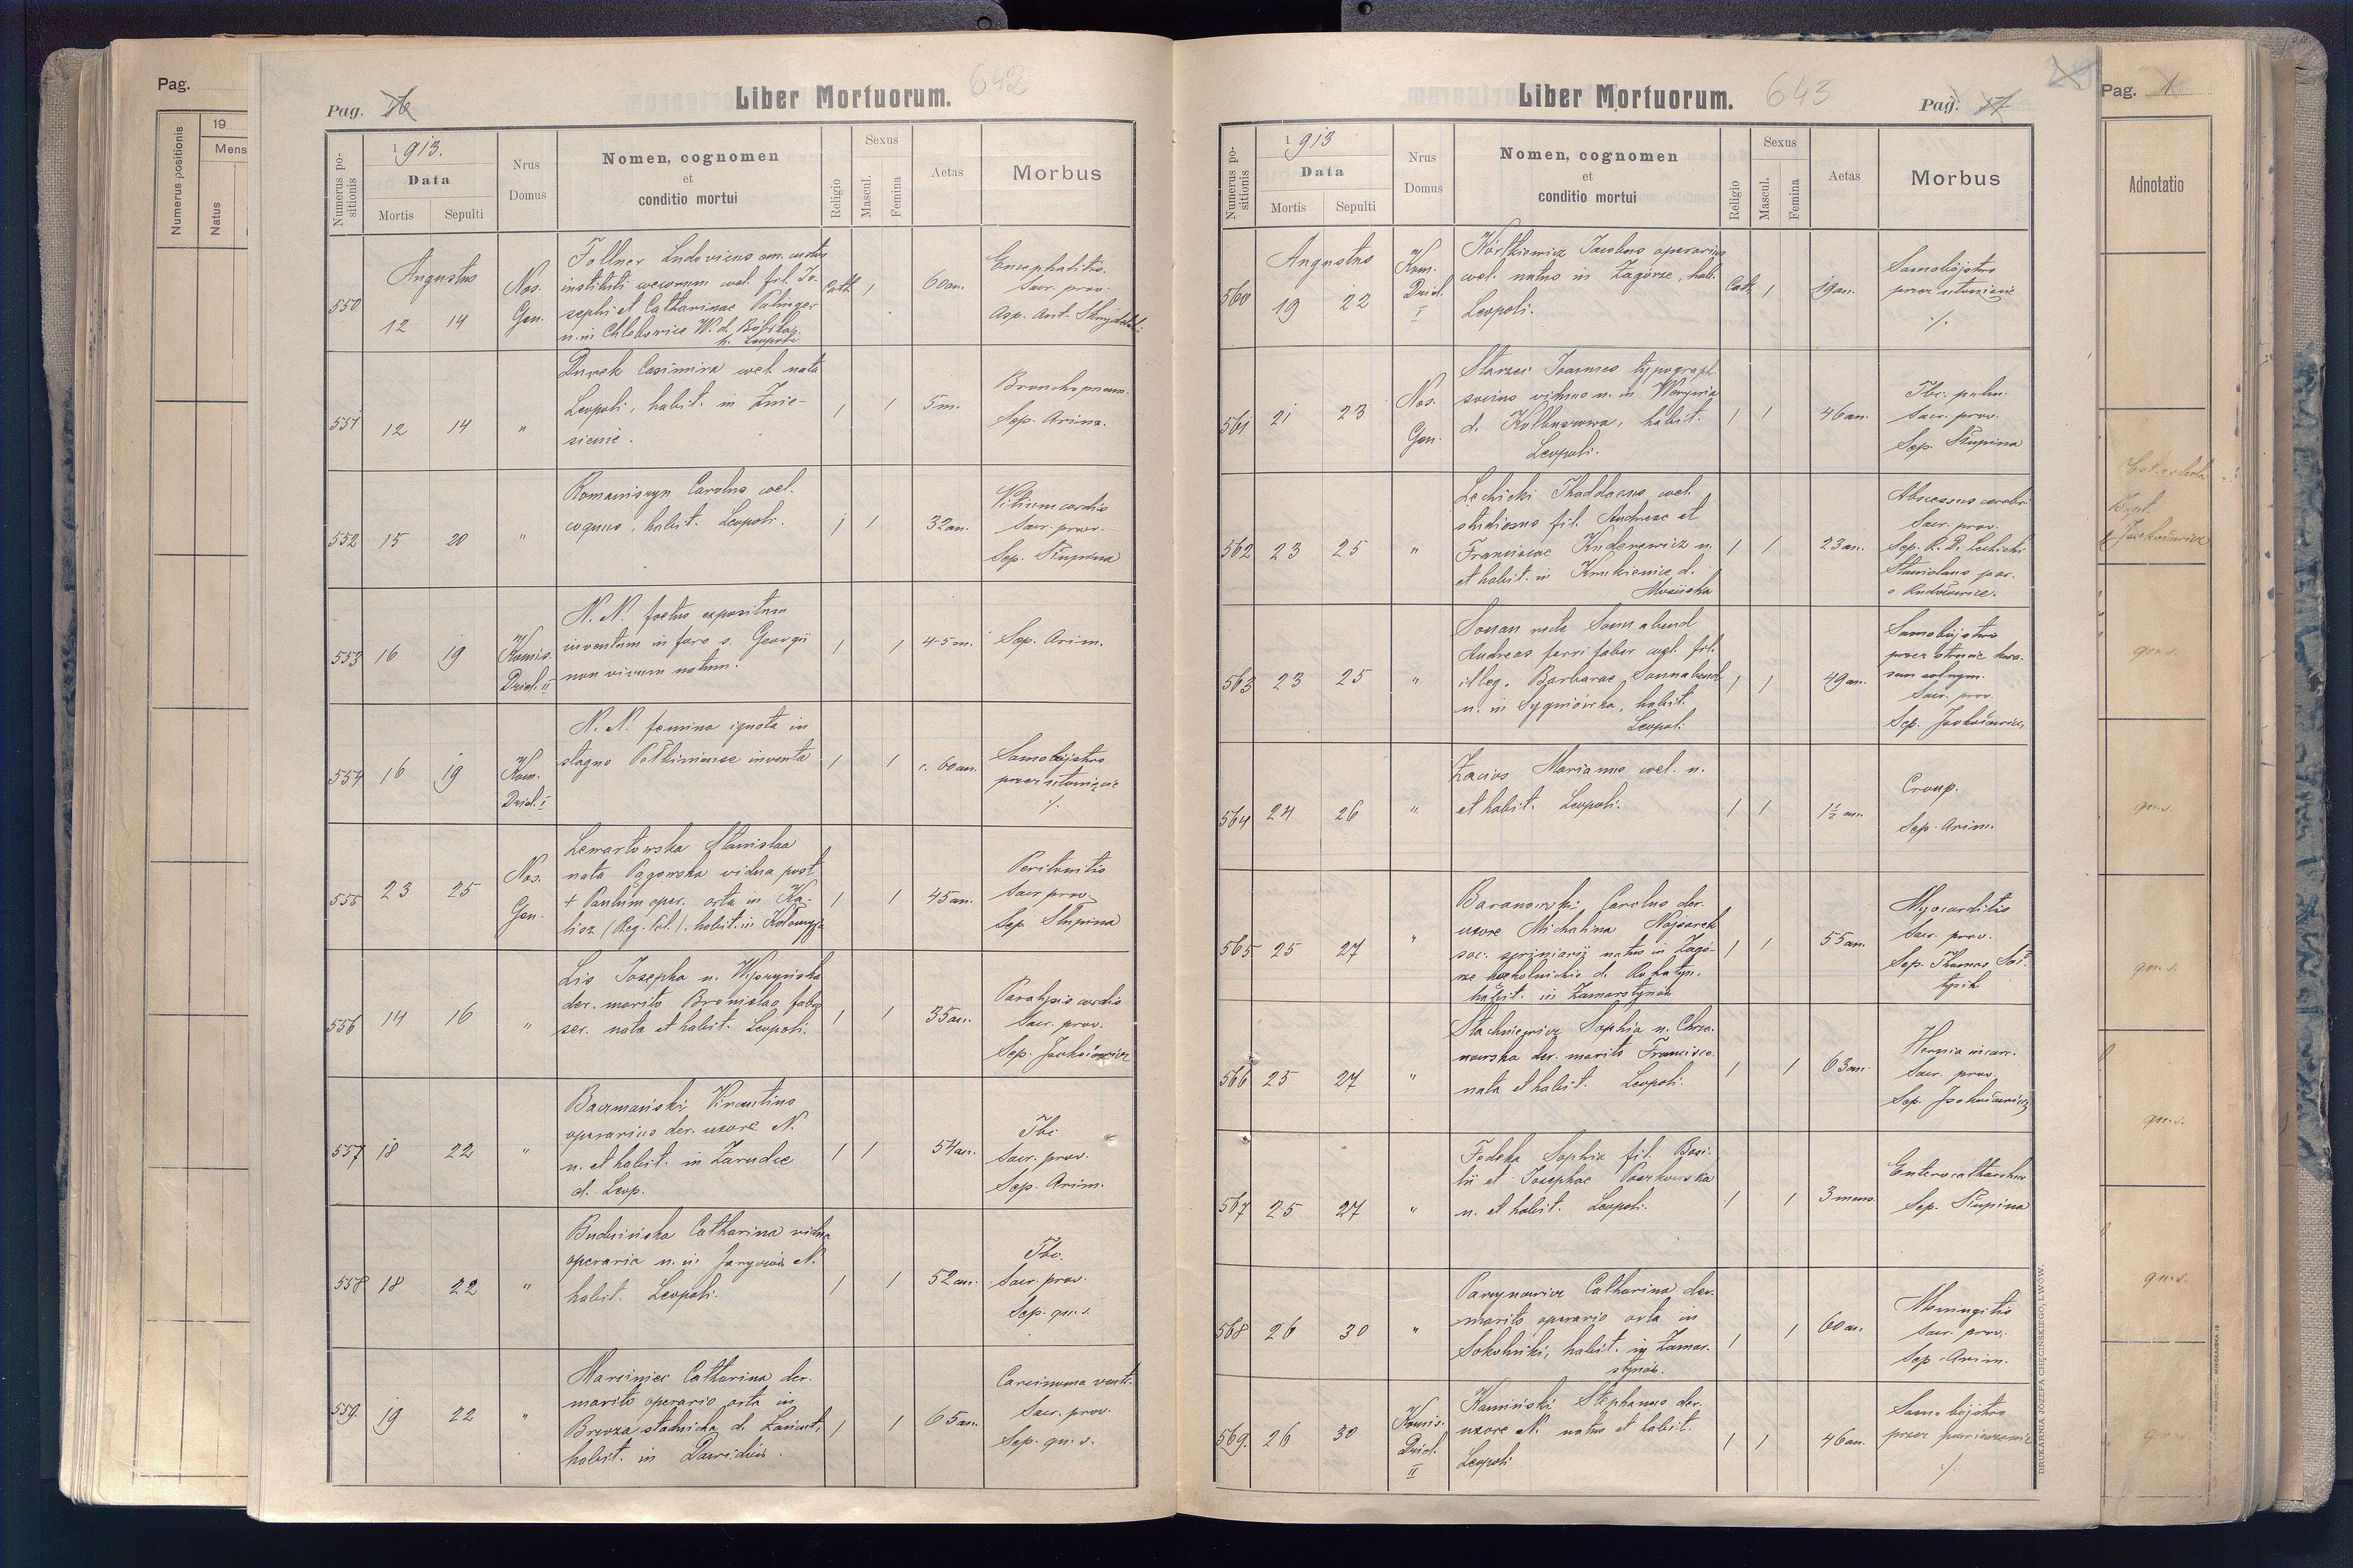 Pag.
Numerus positionis
19
Mens
Natus
Pag. 16
Liber Mortuorum.
642
Numerus positionis
1913.
Data
Mortis
Sepulti
Nrus Domus
Nomen, cognomen
et
conditio mortui
Religio
Sexus
Mascul.
Femina
Aetas
Morbus
Augustus
550
12
14
Nos.
Gen.
Follner Ludovicus em. custos
instituti coecorum coel. fil. Jo-
sephi et Catharinae Palinger
n. in Chlebowice W. d. Bóbrka,
h. Leopoli
Cath.
1
60 an.
Encephalitis.
Sacr. prov.
Asp. Ant.
551
12
14
"
Durek Casimira coel. nata
Leopoli, habit. in Znie-
sienie.
1
1
5 m.
Bronchopneum.
Sep. Arima.
552
15
20
"
Romaniszyn Carolus coel.
coquus, habit. Leopoli.
1
1
32 an.
Vitium cordis
Sacr. prov.
Sep. Słupina
553
16
19
z
Komis.
Dziel. II
N. N. foetus expositum
inventum in foro s. Georgii
non vivum natum.
1
1
4-5 m.
Sep. Arim.
554
16
19
z
Kom.
Dziel. I
N. N. femina ignota in
stagno Pełkiniense inventa
1
1
c. 60 an.
Samobójstwo
przez utonięcie
./.
555
23
25
Nos.
Gen.
Lewartowska Stanislaa
nata Pągowska vidua post
+ Paulum oper. orta in Ka-
lisz (Reg. Pol.). habit. in Kołomyja
1
1
45 an.
Peritonitis
Sacr. prov.
Sep. Słupina
556
14
16
"
Lis Josepha n. Wyczyńska
der. marito Bronislao fabro
ser. nata et habit. Leopoli.
1
1
35 an.
Paralysis cordis
Sacr. prov.
Sep. Jaśkiewicz
557
18
22
"
Baczmański Vincentius
operarius der. uxore N.
n. et habit. in Zarudce
d. Leop.
1
1
54 an.
Tbc
Sacr. prov.
Sep. Arim.
558
18
22
"
Budzińska Catharina vidua
operaria n. in Jaryczów N.
habit. Leopoli.
1
1
52 an.
Tbc.
Sacr. prov.
Sep. qu. s.
559.
19
22
"
Marciniec Catharina der.
marito operario orta in
Brzoza stadnicka d. Łańcut,
habit. in Dawidów.
1
1
65 an.
Carcinoma ventr.
Sacr. prov.
Sep. qu. s.
Liber Mortuorum.
643
Pag. 17
Numerus positionis
1913
Data
Mortis
Sepulti
Nrus Domus
Nomen, cognomen
et
conditio mortui
Religio
Sexus
Mascul.
Femina
Aetas
Morbus
Augustus
560
19
22
z
Kom.
Dziel.
I
Jacobus operarius
coel. natus in Zagórze, hab.
Leopoli.
Cath.
1
19 an.
Samobójstwo
przez utonięcie
./.
561
21
23
Nos.
Gen.
Starzec Joannes typograph.
socius viduus n. in Werynia
d. Kolbuszowa, habit.
Leopoli.
1
1
46 an.
Tbc. pulm.
Sacr. prov.
Sep. Słupina
562
23
25
"
Lechicki Thaddaeus coel.
studiosus fil. Andreae et
Franciscae n.
et habit. in Krukienice d.
Mościska
1
1
23 an.
Abscessus cerebri
Sacr. prov.
Sep. R. D. Lechicki
Stanislaus par.
563
23
25
"
Sonan recte Sonnabend
Andreas ferri faber coel. fil.
illeg. Barbarae Sonnabend
n. in Sygniówka, habit.
Leopoli
1
1
49 an.
Samobójstwo
przez otrucie kwa-
sem solnym.
Sacr. prov.
Sep. Jaśkiewicz
564
24
26
"
Zacios Marianus coel. n.
et habit. Leopoli.
1
1
1½ an.
Croup.
Sep. Arim.
565
25
27
"
Baranowski Carolus der.
uxore Michalina Najsarek
soc. scriniarii natus in Zagó-
rze knihinickie d. Rohatyn.
habit. in Zamarstynów
1
1
55 an.
Myocarditis
Sacr. prov.
Sep. Thomas
566
25
27
"
Stachniewicz Sophia n. Chrza-
nowska der. marito Francisco.
nata et habit. Leopoli.
1
1
63 an.
Hernia incarc.
Sacr. prov.
Sep. Jaśkiewicz
567
25
27
"
Fedeka Sophia fil. Basi-
lii et Josephae Paszkowska
n. et habit. Leopoli.
1
1
3 mens.
Enterocatharrhus
Sep. Słupina
568
26
30
"
Parzynowicz Catharina der.
marito operario orta in
Sokolniki, habit. in Zamar-
stynów.
1
1
60 an.
Meningitis
Sacr. prov.
Sep. Arim.
569.
26
30
z
Komis.
Dziel.
II
Kamiński Stephanus der.
uxore N. natus et habit.
Leopoli
1
1
46 an.
Samobójstwo
przez powieszenie
./.
DRUKARNIA JÓZEFA CHĘCIŃSKIEGO, LWÓW.
Pag. 1
Adnotatio
qu. s.
qu. s.
qu. s.
qu. s.
qu. s.